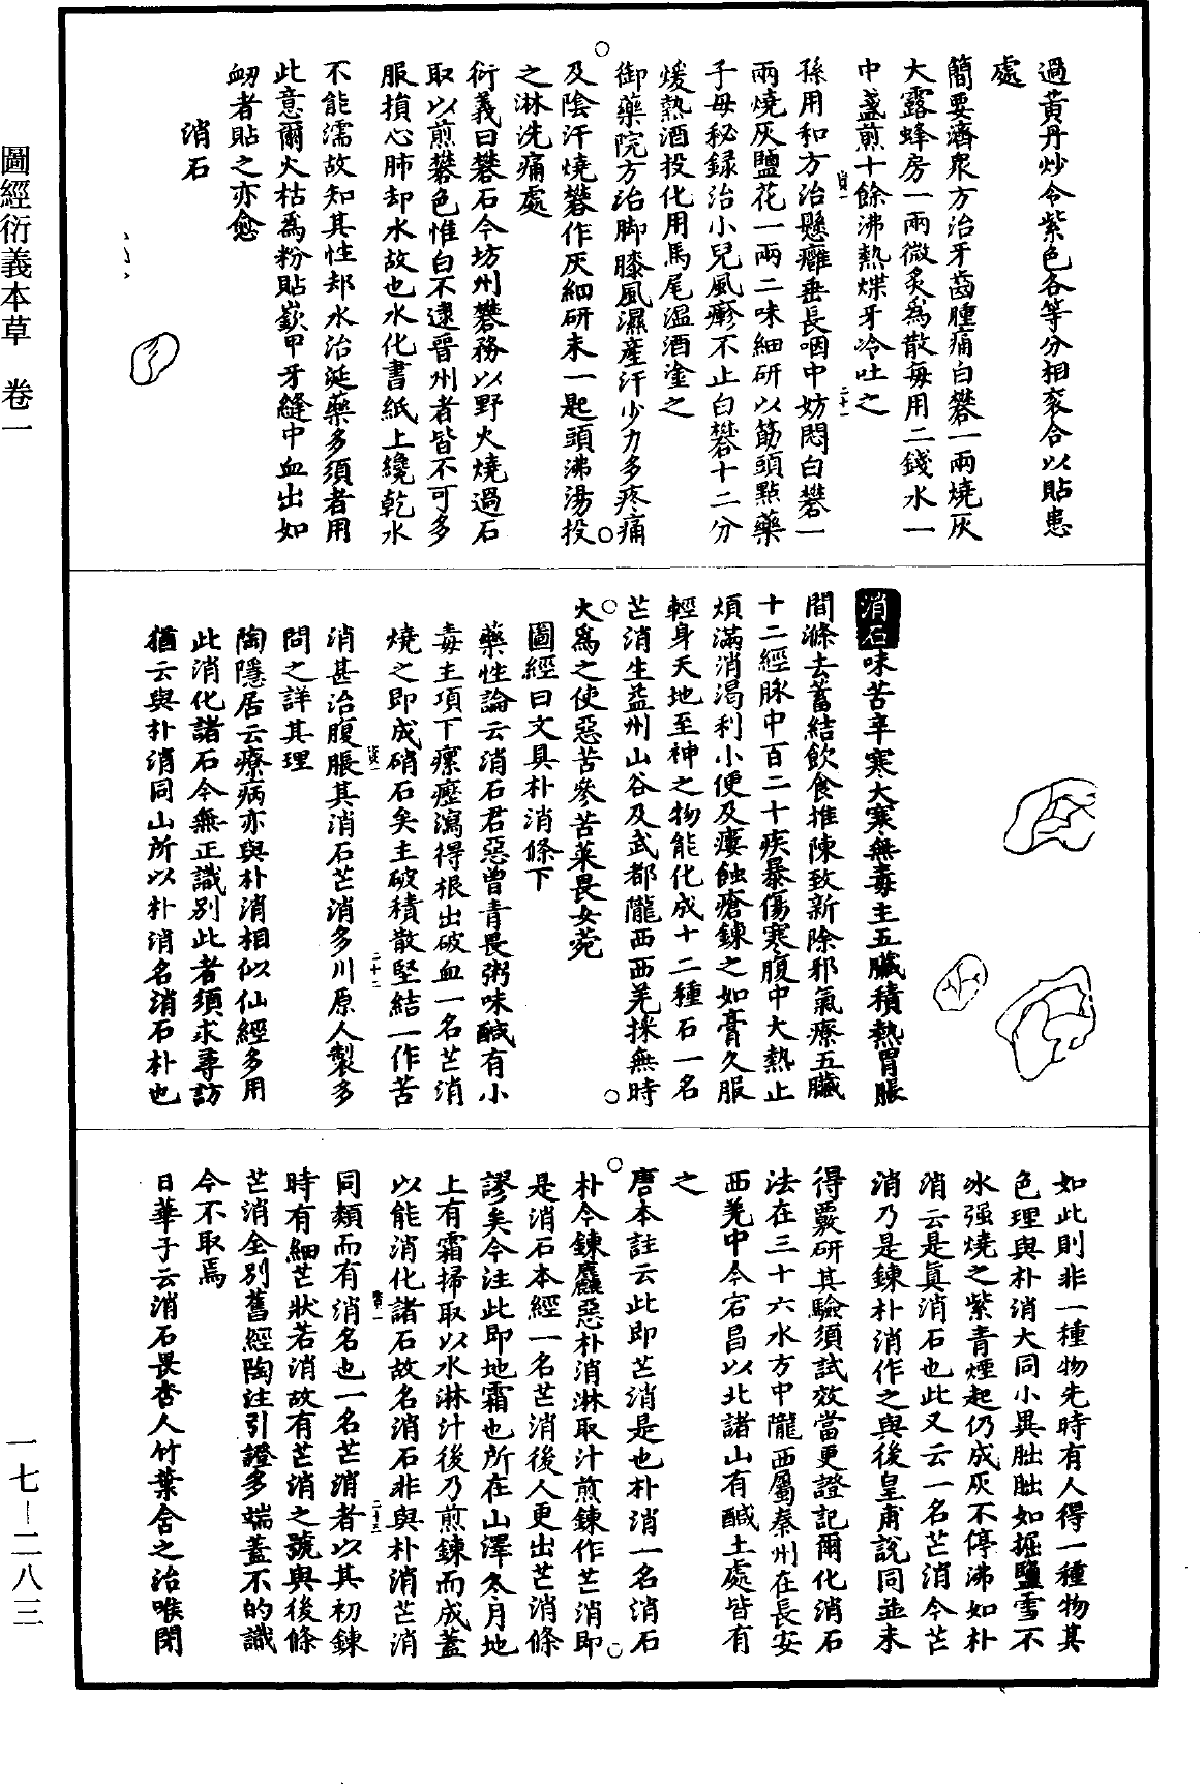 過黃丹炒令紫色各等分相衮合以貼患
處
簡要濟衆方治牙齒腫痛白礬一兩燒灰
大露蜂房一兩微炙爲散每用二錢水一
中盞煎十餘沸熱煠牙冷吐之
孫用和方治懸癰垂長咽中妨悶白礬一
兩燒灰鹽花一兩二味細研以筋頭點藥
子母秘録治小兒風瘮不止白礬十二分
煖熱酒投化用馬尾溫酒塗之
御藥院方治脚膝風濕産汗少力多疼痛
及陰汗燒礬作灰細研末一匙頭沸湯投
之淋洗痛處
衍義曰礬石今坊州礬務以野火燒過石
取以煎礬色惟白不逮晉州者皆不可多
服損心肺却水故也水化書紙上纔乾水
不能濡故知其性却水治涎藥多須者用
此意爾火枯爲粉貼嵌甲牙縫中血出如
衂者貼之亦愈
消石
消石味苦辛寒大寒無毒主五臟積熱胃脹
閉滌去蓄結飲食推陳致新除邪氣療五臟
十二經脉中百二十疾暴傷寒腹中大熱止
煩滿消渴利小便及瘻蝕瘡鍊之如膏久服
輕身天地至神之物能化成十二種石一名
芒消生益州山谷及武都隴西西羌採無時
火爲之使惡苦參苦菜畏女菀
圖經曰文具朴消條下
藥性論云消石君惡曾青畏粥味醎有小
毒主項下瘰癧瀉得根出破血一名芒消
燒之即成硝石矣主破積散堅結一作苦
消甚治腹脹其消石芒消多川原人製多
問之詳其理
陶隱居云療病亦與朴消相似仙經多用
此消化諸石今無正識別此者須求尋訪
猶云與朴消同山所以朴消名消石朴也
如此則非一種物先時有人得一種物其
色理與朴消大同小異朏朏如握鹽雪不
冰强燒之紫青煙起仍成灰不停沸如朴
消云是眞消石也此又云一名芒消今芒
消乃是鍊朴消作之與後皇甫說同並未
得覈研其驗須試效當更證記爾化消石
法在三十六水方中隴西屬秦州在長安
西羌中今宕昌以北諸山有醎土處皆有
之
唐本註云此即芒消是也朴消一名消石
朴今鍊麤惡朴消淋取汁煎鍊作芒消即
是消石本經一名芒消後人更出芒消條
謬矣今注此即地霜也所在山澤冬月地
上有霜掃取以水淋汁後乃煎鍊而成蓋
以能消化諸石故名消石非與朴消芒消
同類而有消名也一名芒消者以其初鍊
時有細芒狀若消故有芒消之號與後條
芒消全別舊經陶注引證多端蓋不的識
今不取焉
日華子云消石畏杏人竹葉含之治喉閉
圖經衍義本草　卷一
一七—二八三